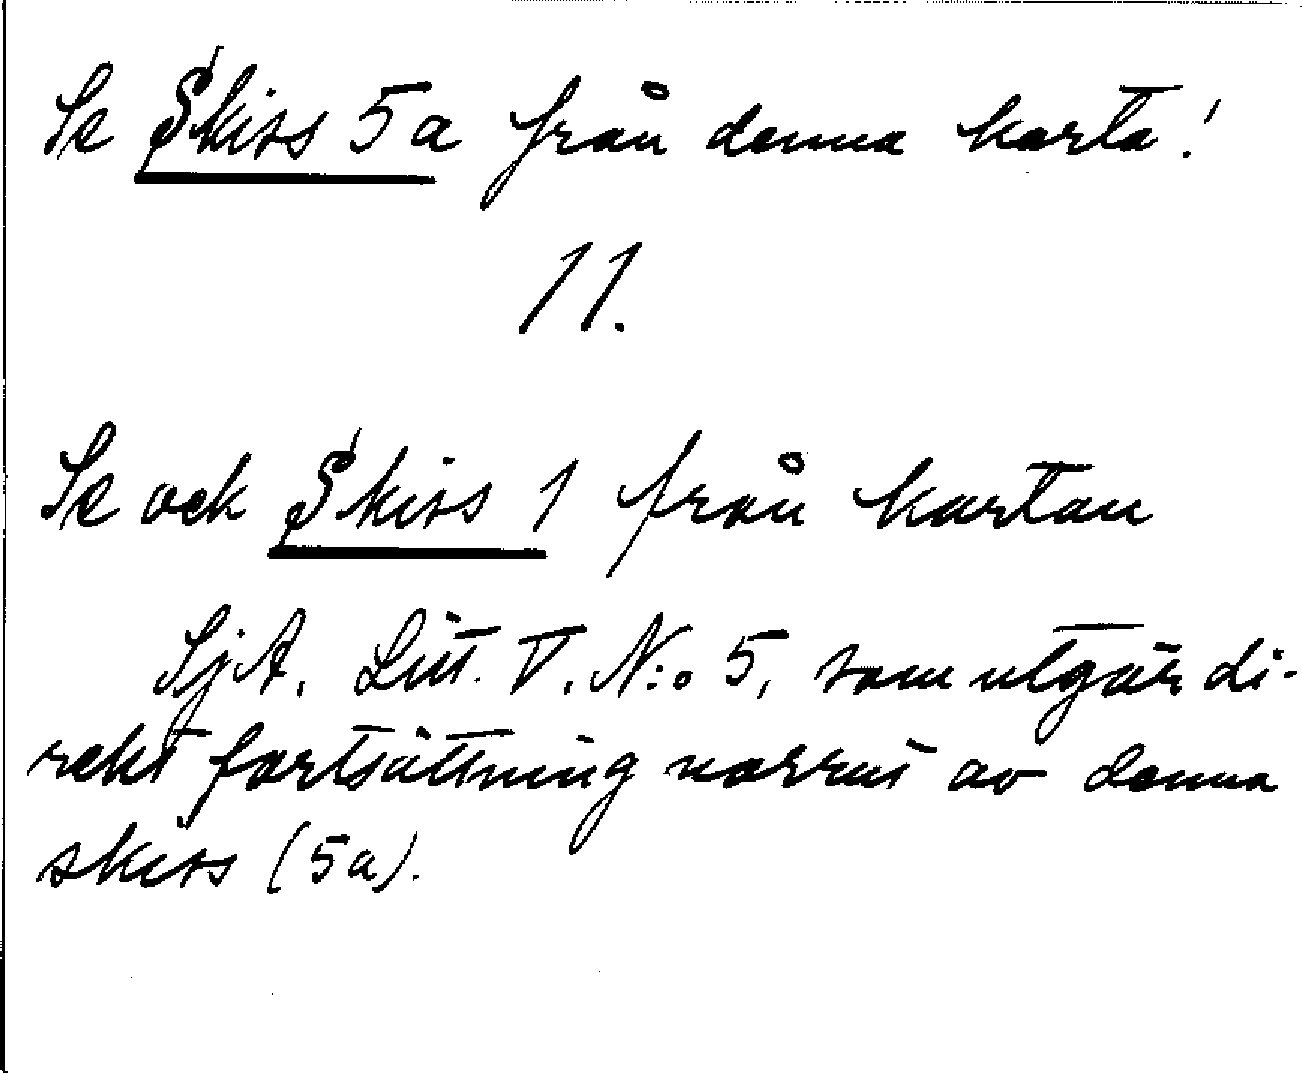 Se Skiss 5a från denna karta!
11.
Se ock Skiss 1 från kartan
SjA. Litt. V. N:o 5, som utgör di-
rekt fortsättning norrut av denna
skiss (5a).